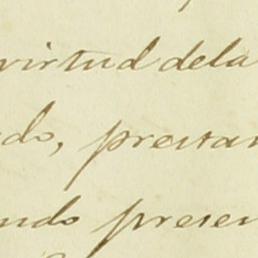 virtud dela
do, prestan
ndo presen